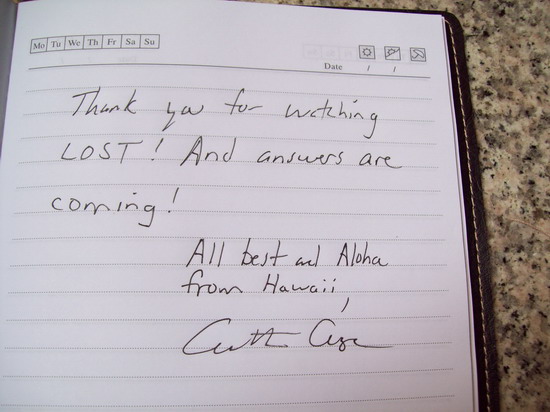 Mo Tu We Th Fr Sa Su
Date / /
Thank you for watching
LOST! And answers are
coming!
All best and Aloha
from Hawaii,